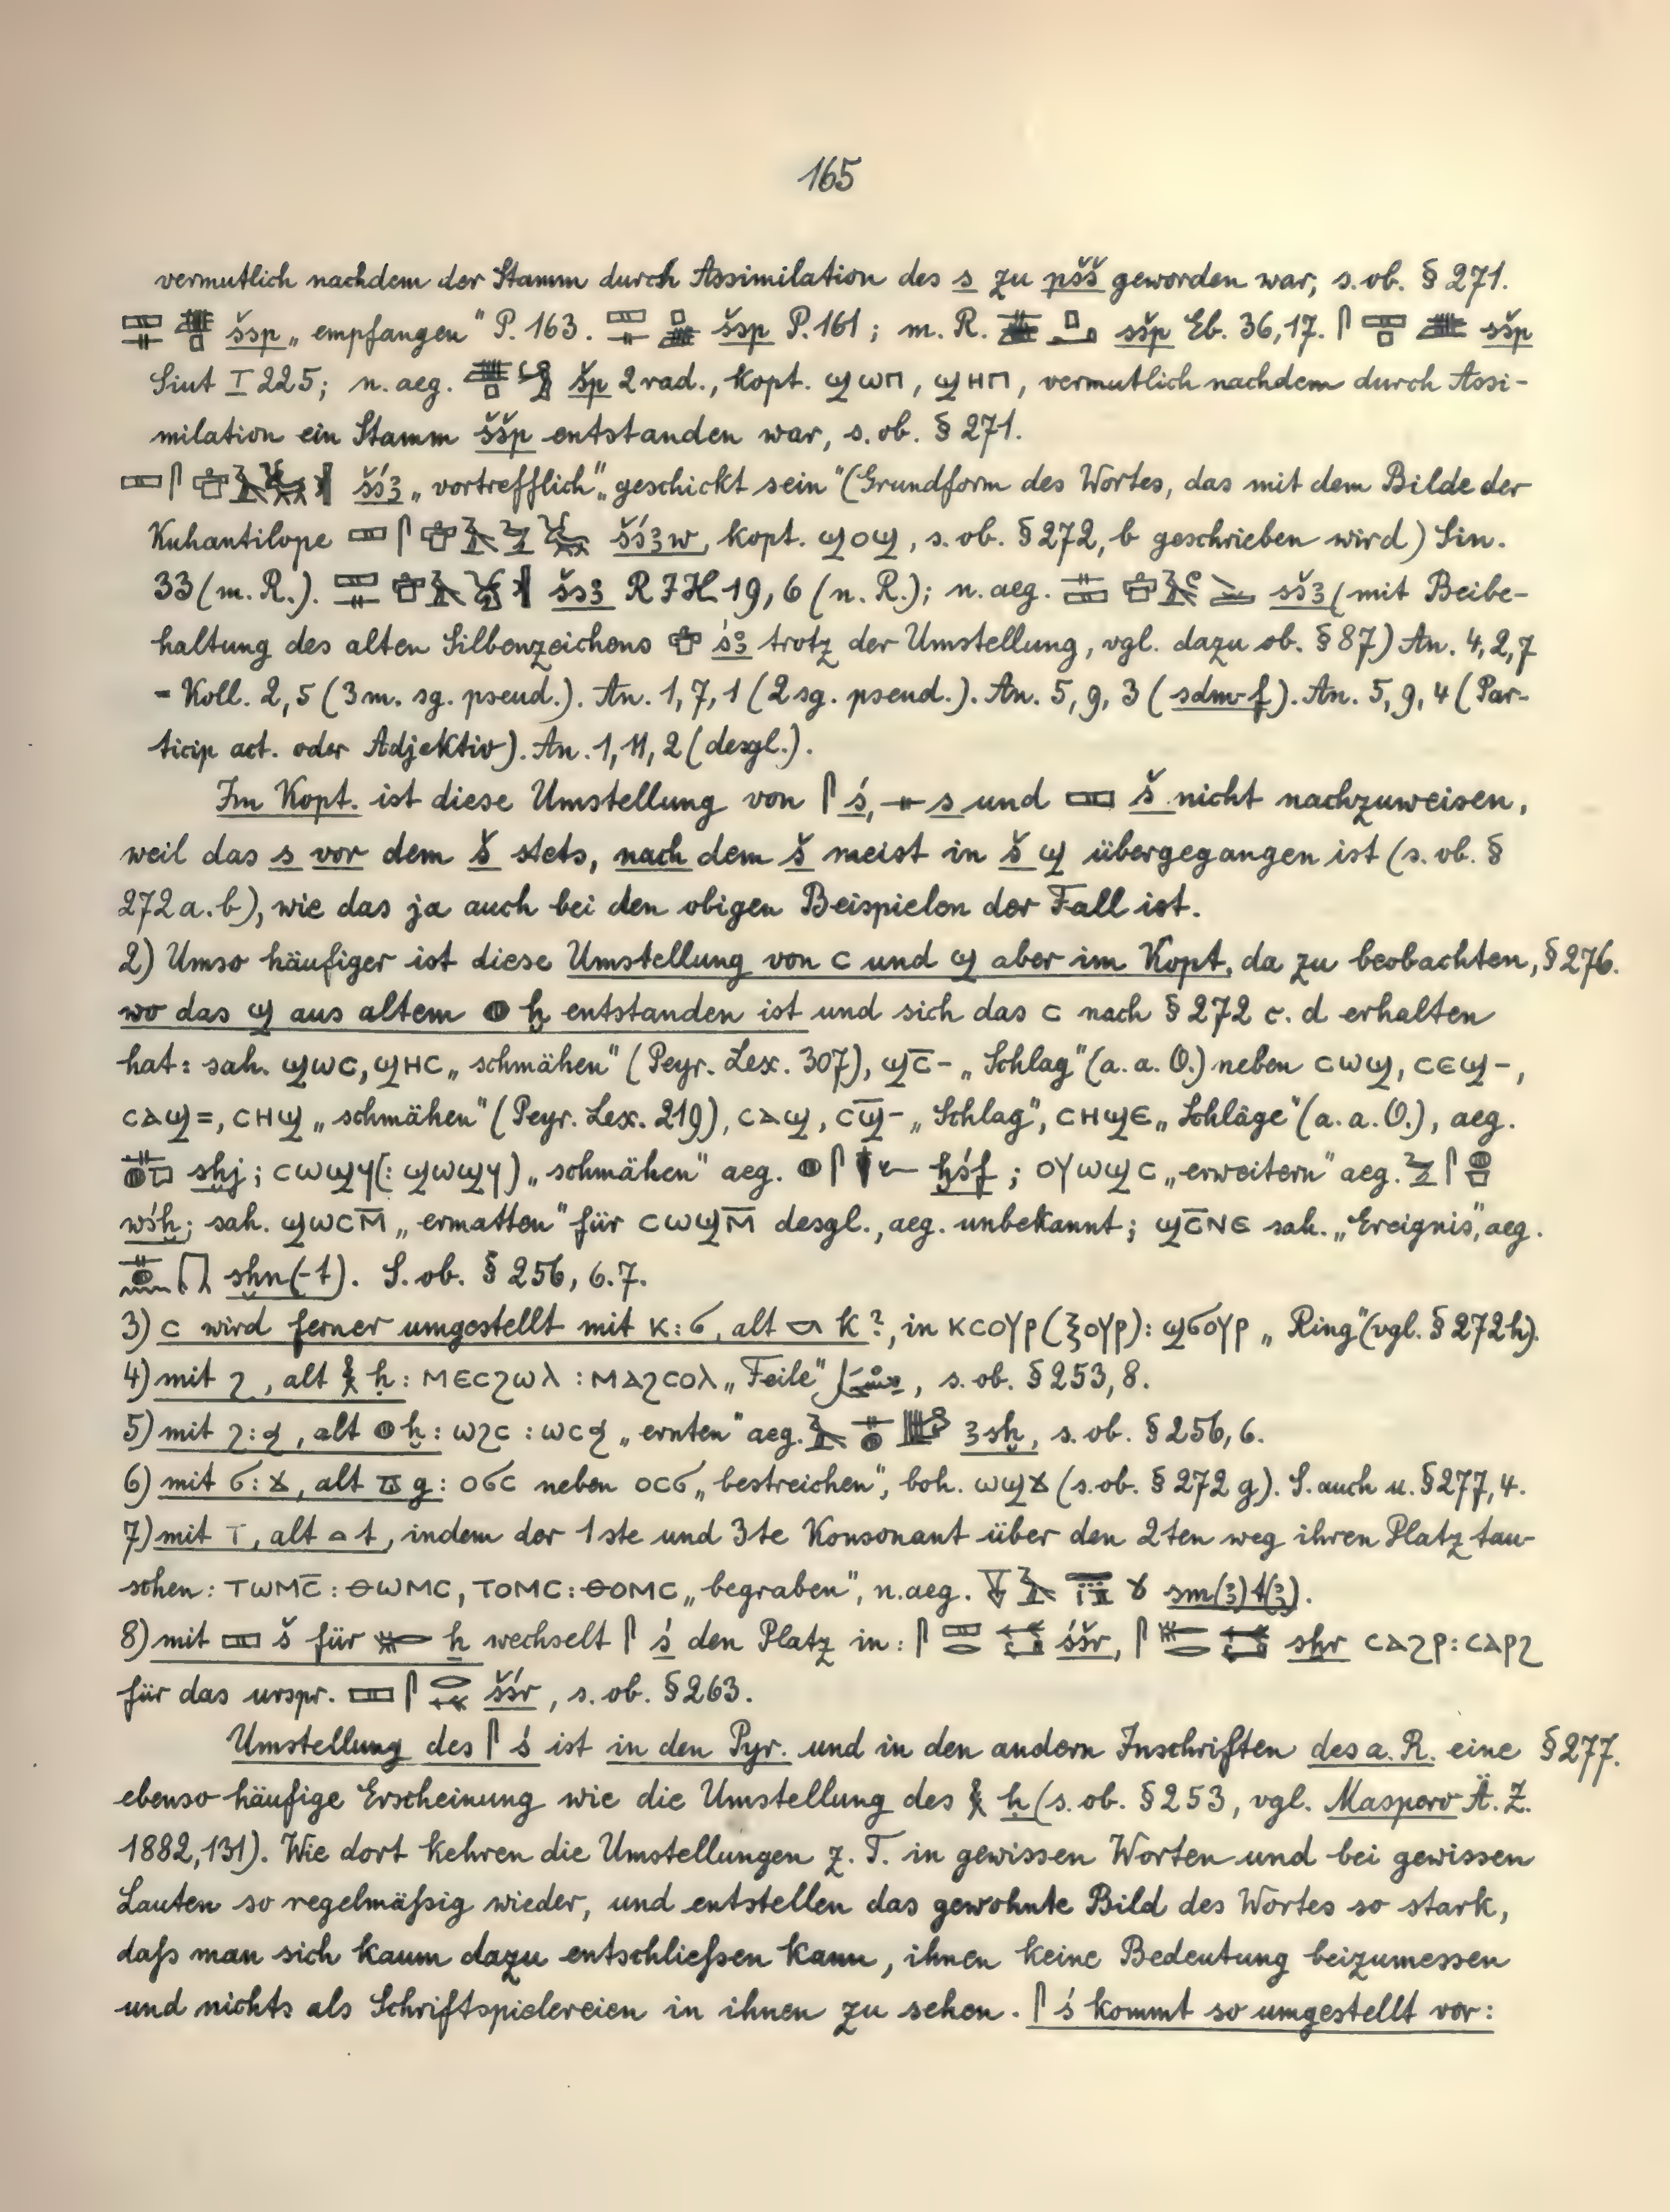 165
vermutlich nachdem der Stamm durch Assimilation des s zu pšš geworden war, s. ob. § 271.
šsp „empfangen" P. 163. šsp P. 161; m. R. sšp Eb. 36,17. sšp
Siut I 225; n. aeg. šp 2 rad., kopt. ϣⲱⲡ, ϣⲏⲡ, vermutlich nachdem durch Assi-
milation ein Stamm ššp entstanden war, s. ob. § 271.
šśꜣ „vortrefflich" „geschickt sein" (Grundform des Wortes, das mit dem Bilde der
Kuhantilope šśꜣw, kopt. ϣⲟϣ, s. ob. § 272, b geschrieben wird) Sin.
33 (m. R.). šsꜣ RIH 19, 6 (n. R.); n. aeg. sšꜣ (mit Beibe-
haltung des alten Silbenzeichens śꜣ trotz der Umstellung, vgl. dazu ob. § 87) An. 4, 2, 7
= Koll. 2, 5 (3 m. sg. pseud.). An. 1, 7, 1 (2 sg. pseud.). An. 5, 9, 3 (sdm-f). An. 5, 9, 4 (Par-
ticip act. oder Adjektiv). An. 1, 11, 2 (desgl.).
Im Kopt. ist diese Umstellung von 𓋴 ś, 𓊃 s und 𓈙 š nicht nachzuweisen,
weil das s vor dem š stets, nach dem š meist in š ϣ übergegangen ist (s. ob. §
272 a. b), wie das ja auch bei den obigen Beispielen der Fall ist.
2) Umso häufiger ist diese Umstellung von ⲥ und ϣ aber im Kopt. da zu beobachten, § 276.
wo das ϣ aus altem 𓐍 ḫ entstanden ist und sich das ⲥ nach § 272 c. d erhalten
hat: sah. ϣⲱⲥ, ϣⲏⲥ „schmähen" (Peyr. Lex. 307), ϣⲥ̅- „Schlag" (a. a. O.) neben ⲥⲱϣ, ⲥⲉϣ-,
ⲥⲁϣ=, ⲥⲏϣ „schmähen" (Peyr. Lex. 219), ⲥⲁϣ, ⲥϣ̅- „Schlag", ⲥⲏϣⲉ „Schläge" (a. a. O.), aeg.
sḫj; ⲥⲱϣϥ (: ϣⲱϣϥ) „schmähen" aeg. ḫśf; ⲟⲩⲱϣⲥ „erweitern" aeg.
wśḫ; sah. ϣⲱⲥⲙ̅ „ermatten" für ⲥⲱϣⲙ̅ desgl., aeg. unbekannt; ϣⲥ̅ⲛⲉ sah. „Ereignis", aeg.
sḫn(-t). S. ob. § 256, 6. 7.
3) ⲥ wird ferner umgestellt mit ⲕ : ϭ, alt 𓎡 k?, in ⲕⲥⲟⲩⲣ (ⲝⲟⲩⲣ) : ϣϭⲟⲩⲣ „Ring" (vgl. § 272 h).
4) mit ϩ, alt 𓎛 ḥ : ⲙⲉⲥϩⲱⲗ : ⲙⲁϩⲥⲟⲗ „Feile", s. ob. § 253, 8.
5) mit ϩ : ⳉ, alt 𓐍 ḫ : ⲱϩⲥ : ⲱⲥⳉ „ernten" aeg. ꜣsḫ, s. ob. § 256, 6.
6) mit ϭ : ϫ, alt 𓎼 g : ⲟϭⲥ neben ⲟⲥϭ „bestreichen", boh. ⲱϣϫ (s. ob. § 272 g). S. auch u. § 277, 4.
7) mit ⲧ, alt 𓏏 t, indem der 1ste und 3te Konsonant über den 2ten weg ihren Platz tau-
schen: ⲧⲱⲙⲥ̅ : ⲑⲱⲙⲥ, ⲧⲟⲙⲥ : ⲑⲟⲙⲥ „begraben", n. aeg. sm(ꜣ)t(ꜣ).
8) mit 𓈙 š für 𓄡 ẖ wechselt 𓋴 ś den Platz in: śšr, sẖr ⲥⲁϩⲣ : ⲥⲁⲣϩ
für das urspr. šśr, s. ob. § 263.
Umstellung des 𓋴 ś ist in den Pyr. und in den andern Inschriften des a. R. eine § 277.
ebenso häufige Erscheinung wie die Umstellung des 𓎛 ḥ (s. ob. § 253, vgl. Maspero Ä. Z.
1882, 131). Wie dort kehren die Umstellungen z. T. in gewissen Worten und bei gewissen
Lauten so regelmäßig wieder, und entstellen das gewohnte Bild des Wortes so stark,
daß man sich kaum dazu entschließen kann, ihnen keine Bedeutung beizumessen
und nichts als Schriftspielereien in ihnen zu sehen. 𓋴 ś kommt so umgestellt vor: